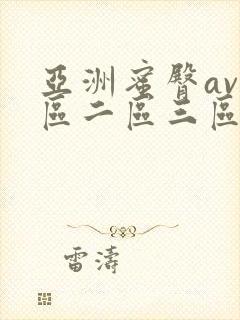 亞洲蜜臀av
區二區三區
雷濤